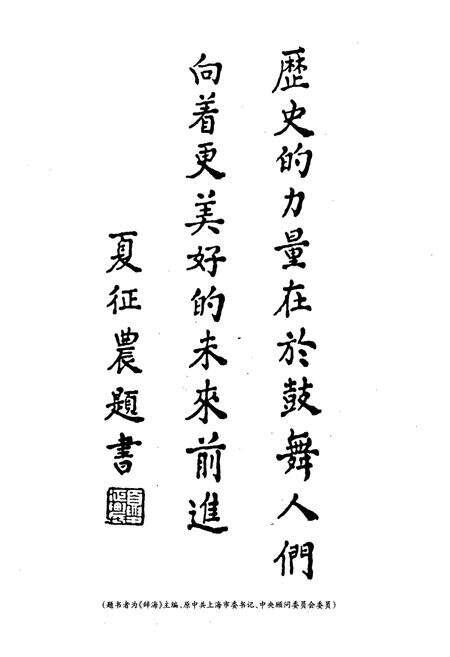 歷史的力量在於鼓舞人們
向着更美好的未來前進
夏征農題書
(题书者为《辞海》主编、原中共上海市委书记、中央顾问委员会委员)